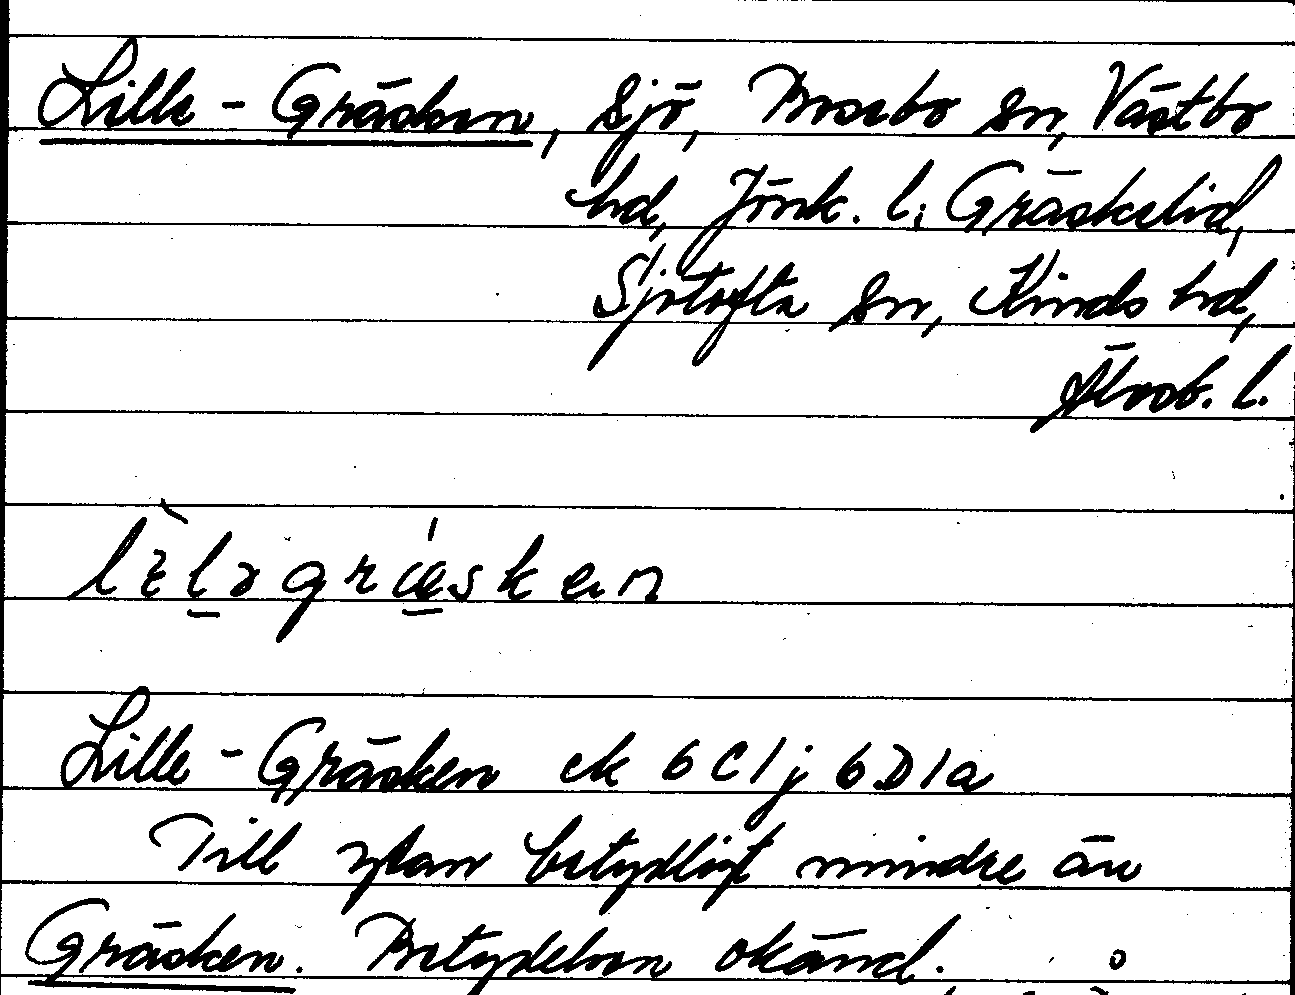 Lille-Gräsken, sjö, Bosebo sn, Västbo
hd, Jönk. l; Gräskelid,
Sjötofta sn, Kinds hd,
Älvsb. l.
Lille-Gräsken ek 6C1j 6D1a
Till ytan betydligt mindre än
Gräsken. Betydelsen okänd.